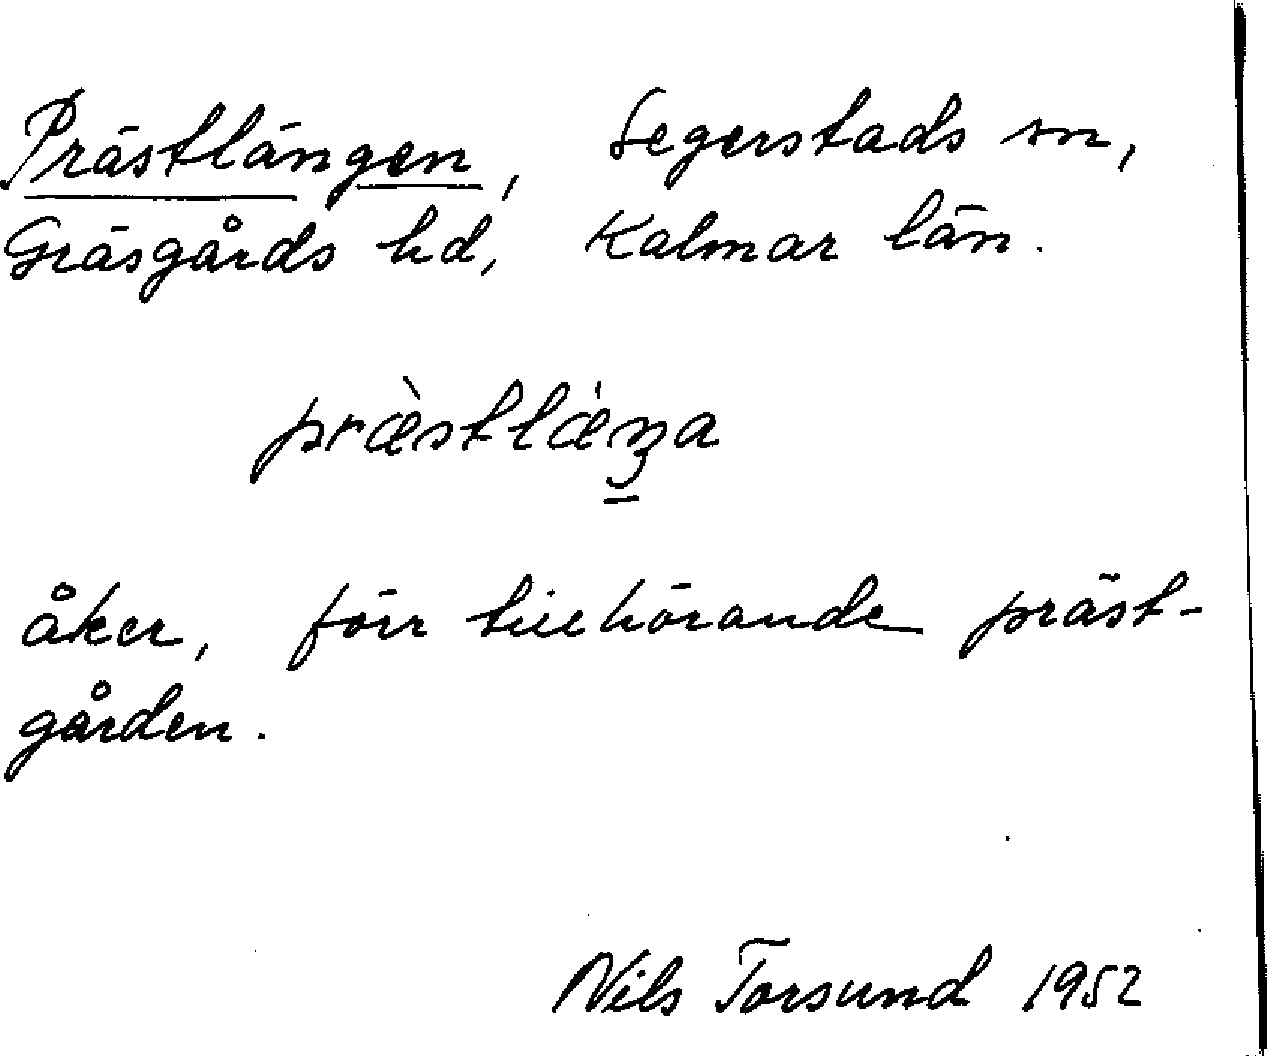 Prästlängen, Segerstads sn,
Gräsgårds hd, Kalmar län.
præ̀stlæ̍ŋa
åker, förr tillhörande präst-
gården.
Nils Torsund 1952